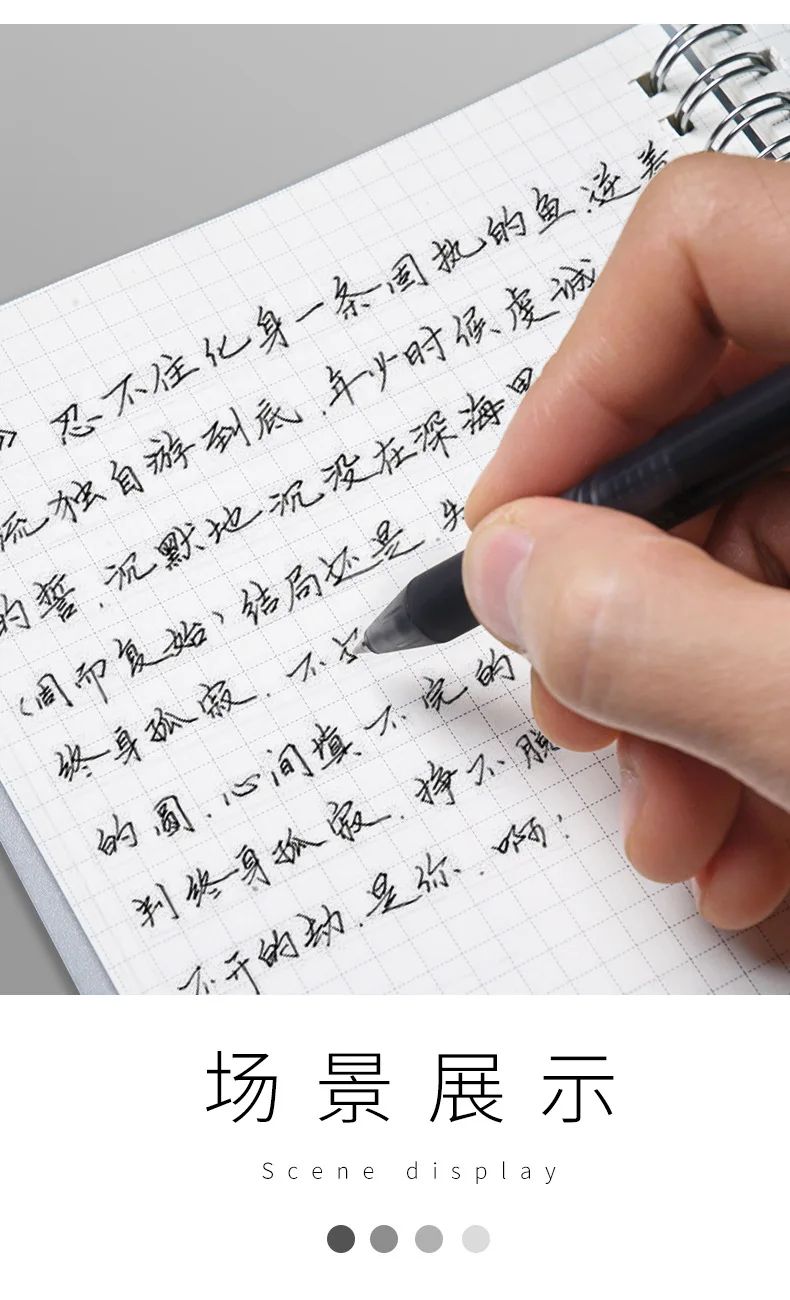 》忍不住化身一条固执的鱼.逆着
流独自游到底.年少时候虔诚
的誓.沉默地沉没在深海里
(周而复始)结局还是.失
终身孤寂.不
的圆.心间填不完的
判终身孤寂.挣不脱
不开的劫.是你.啊!
场景展示
Scene display